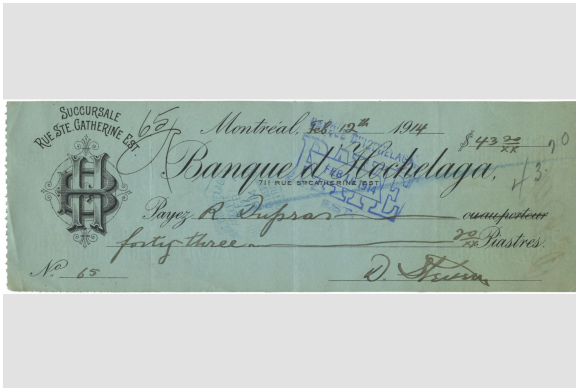 SUCCURSALE
RUE STE. CATHERINE EST.
65
Montréal, Feb 12th 1914
$ 43 20/xx
Banque d'Hochelaga,
711 RUE STE CATHERINE EST
PAYÉE
FEB 1914
Payez R Dupras ou au porteur
forty three 20/xx Piastres
No. 65
D.